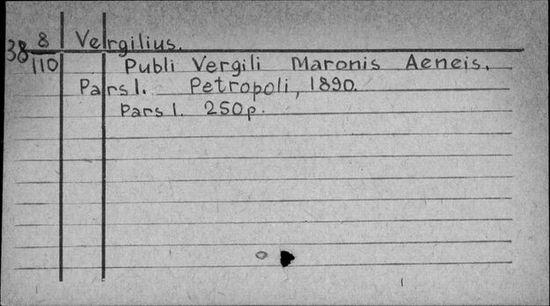 38 8/110 Vergilius.
Publi Vergili Maronis Aeneis.
Pars I. Petropoli, 1890.
Pars I. 250p.